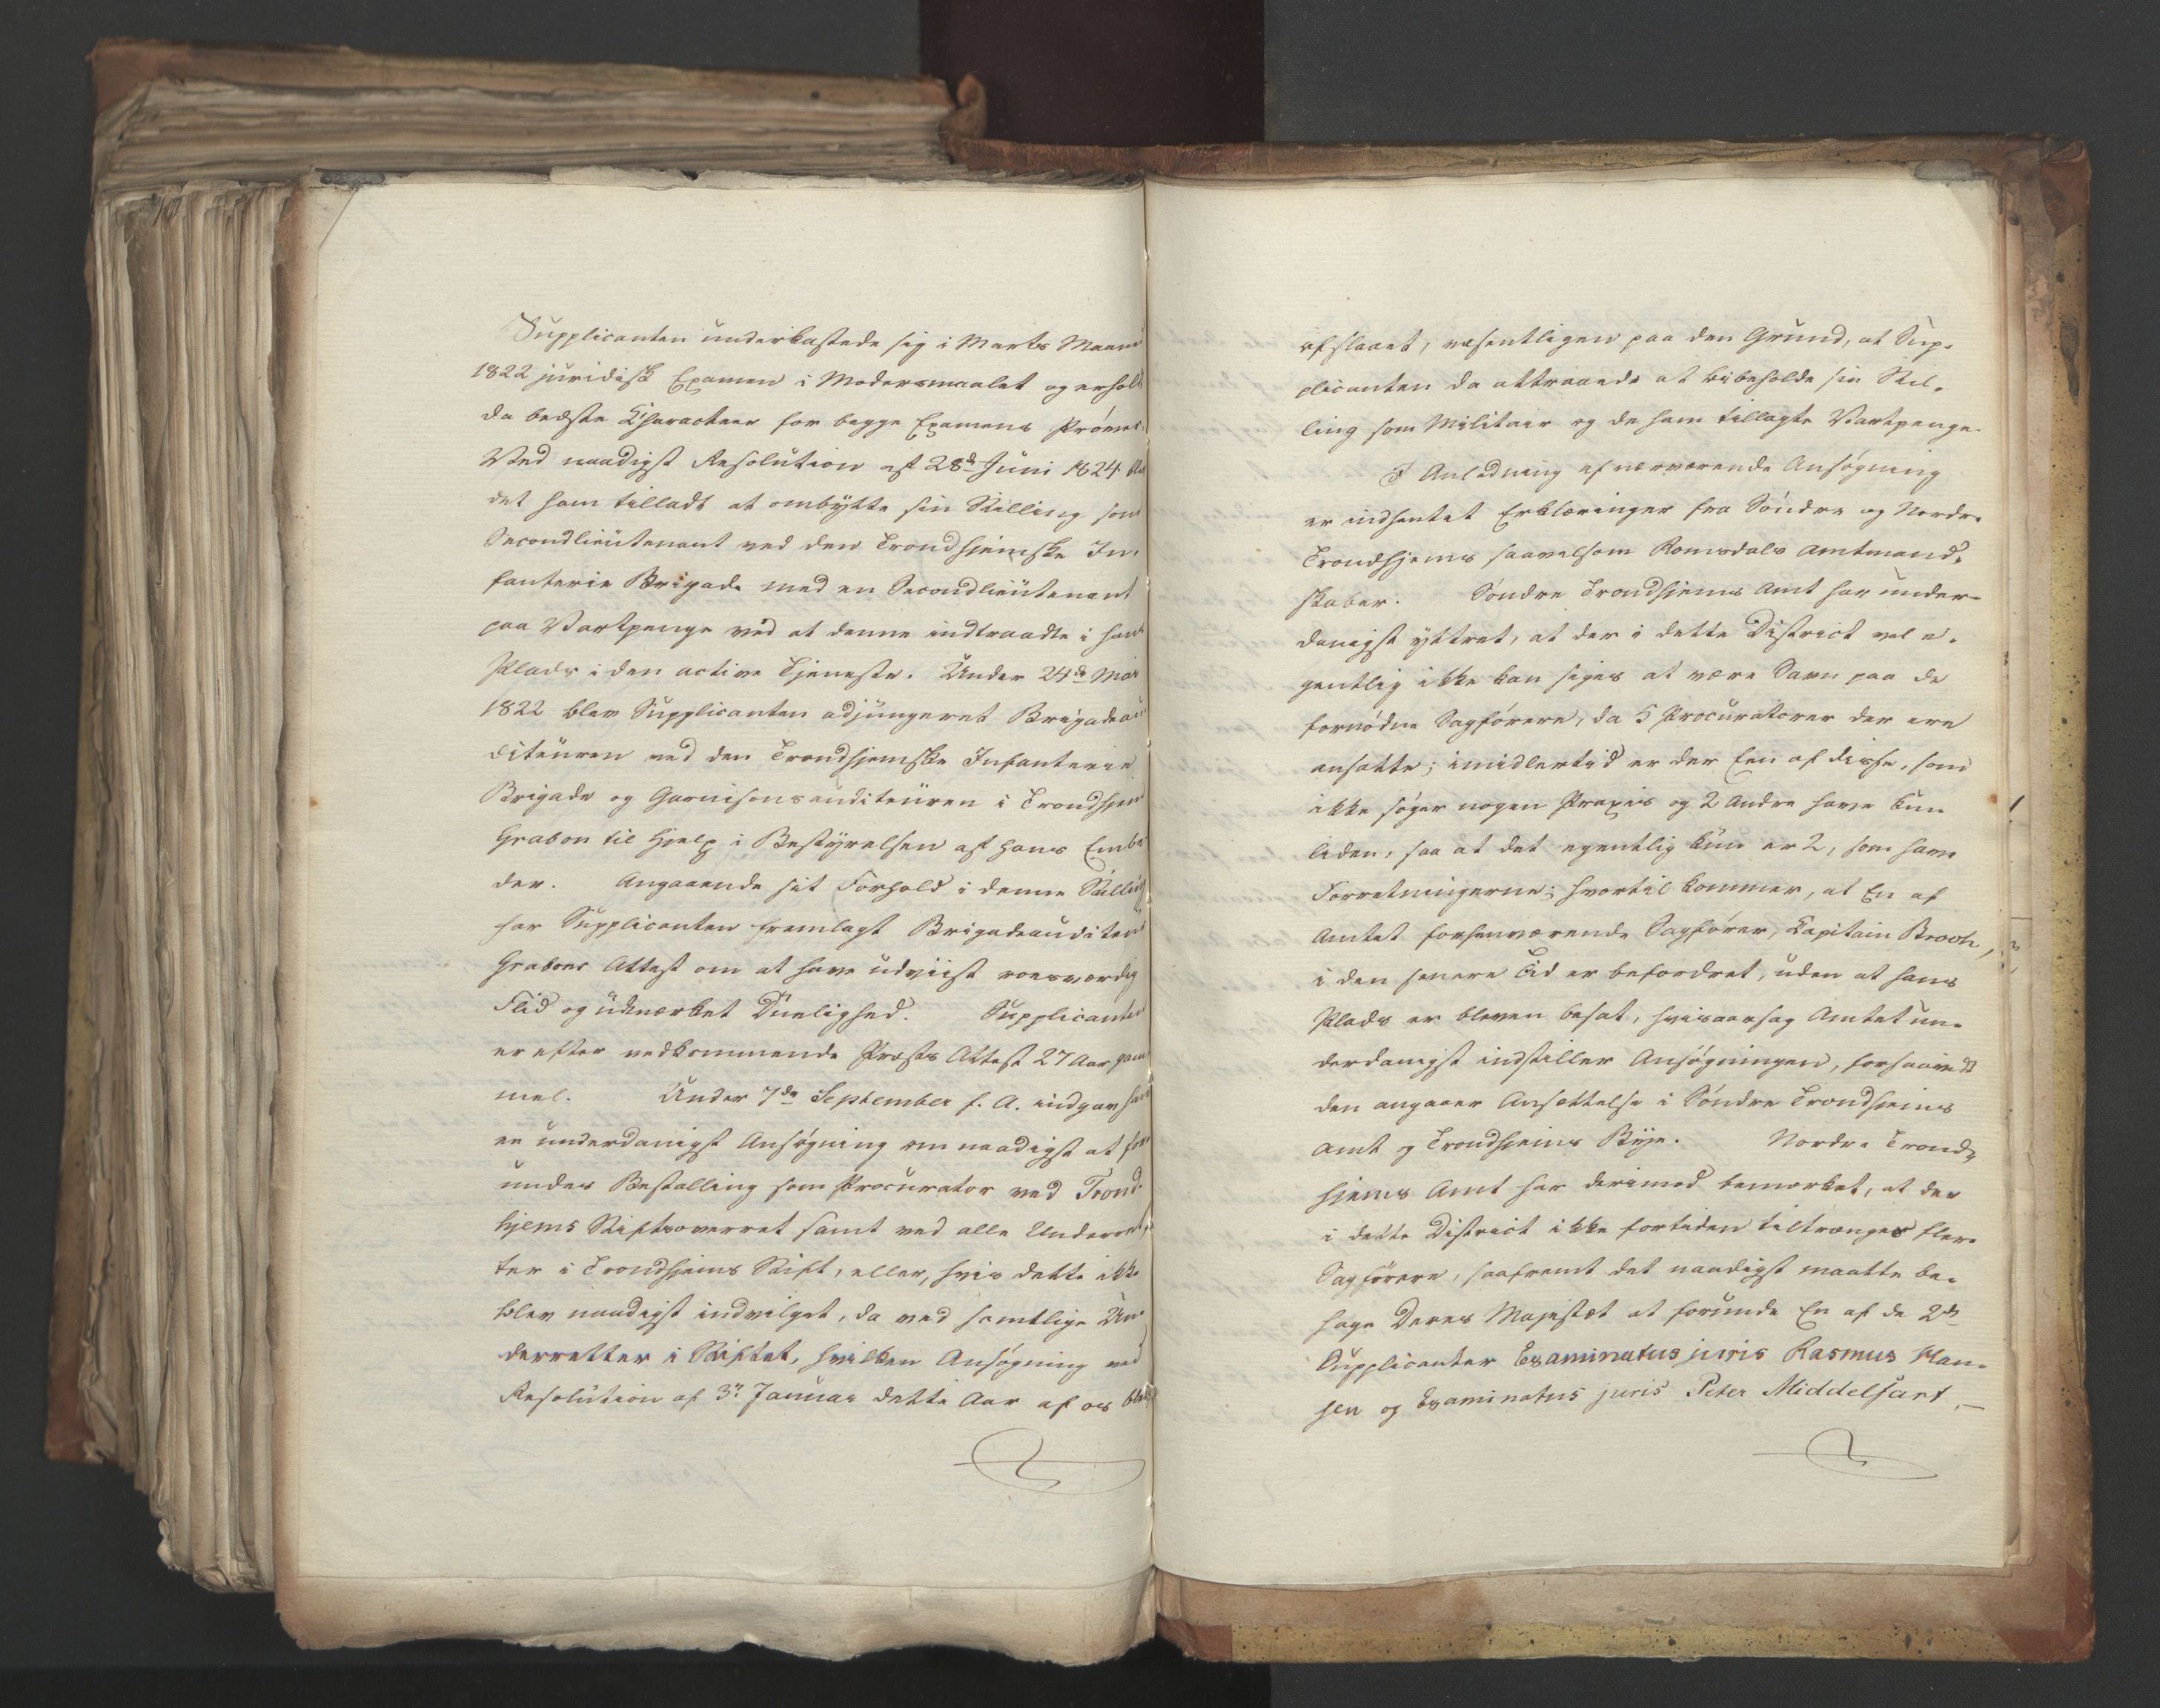 Supplicanten underkastede sig i Marts Maaned
1822 juridisk Examen i Modersmaalet og erholdt
da bedste Characteer for begge Examens Prøver.
Ved naadigst Resolution af 28de Juni 1824 blev
det ham tilladt at ombytte sin Stilling som
Secondlieutenant ved den Trondhjemske In-
fanterie Brigade med en Secondlieutenant
paa Vartpenge ved at denne indtraadte i hans
Plads i den active Tjeneste. Under 24de Mai
1822 blev Supplicanten adjungeret Brigadeau-
diteuren ved den Trondhjemske Infanterie
Brigade og Garnisonsauditeuren i Trondhjem
Grabow til Hjelp i Bestyrelsen af hans Embe-
der. Angaaende sit Forhold i denne Stilling
har Supplicanten fremlagt Brigadeauditeur
Grabows Attest om at have udviist roesværdig
Flid og udmærket Duelighed. Supplicanten
er efter vedkommende Præsts Attest 27 Aar gam-
mel. Under 7de September f. A. indgav han
en underdanigst Ansøgning om naadigst at for-
undes Bestalling som Procurator ved Trond-
hjems Stiftsoverret samt ved alle Underret-
ter i Trondhjems Stift, eller, hvis dette ikke
blev naadigst indvilget, da ved samtlige Un-
derretter i Stiftet, hvilken Ansøgning ved
Resolution af 3die Januar dette Aar af os blev
afslaaet, væsentligen paa den Grund, at Sup-
plicanten da attraaede at bibeholde sin Stil-
ling som Militair og de ham tillagte Vartpenge.
I Anledning af nærværende Ansøgning
er indhentet Erklæringer fra Søndre og Nordre
Trondhjems saavelsom Romsdals Amtmand-
skaber. Søndre Trondhjems Amt har under-
danigst yttret, at der i dette District vel e-
gentlig ikke kan siges at være Savn paa de
fornødne Sagførere, da 5 Procuratorer der ere
ansatte; imidlertid er der Een af disse, som
ikke søger nogen Praxis og 2 Andre have kun
liden, saa at det egentlig kun er 2, som have
Forretningerne; hvortil kommer, at En af
Amtet forhenværende Sagfører, Kapitain Broch,
i den senere Tid er befordret, uden at hans
Plads er bleven besat, hvisaarsag Amtet un-
derdanigst indstiller Ansøgningen, forsaavidt
den angaaer Ansættelse i Søndre Trondhjems
Amt og Trondhjems Bye. Nordre Trond-
hjems Amt har derimod bemærket, at der
i dette District ikke fortiden tiltrænges flere
Sagførere, saafremt det naadigst maatte be-
hage Deres Majestæt at forunde En af de 2de
Supplicanter Examinatus juris Rasmus Han-
sen og Examinatus juris Peter Middelfart,